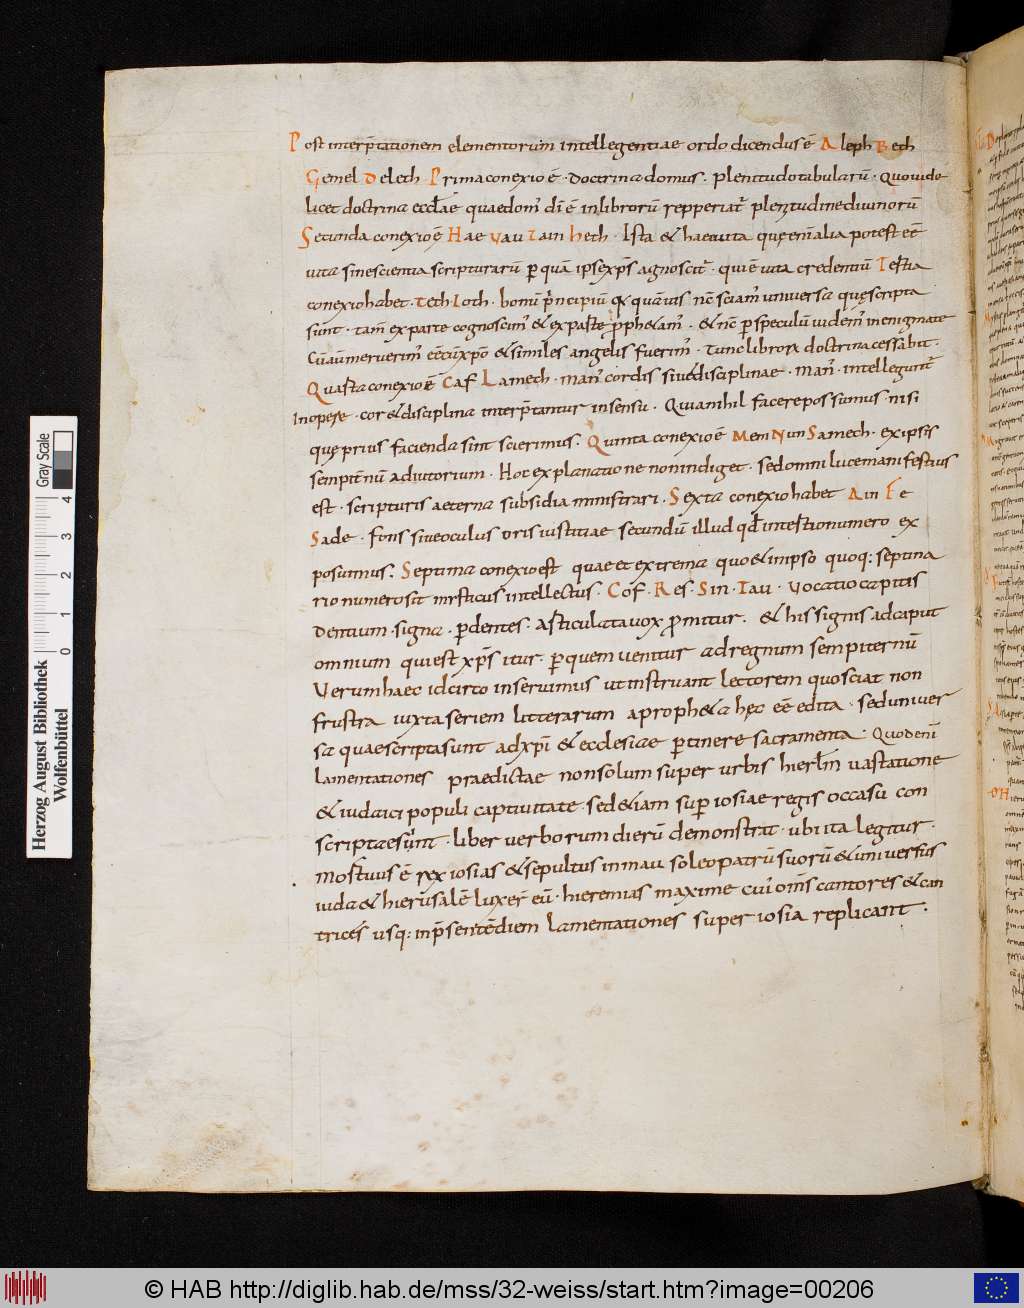 Post interp̄tationem elementorum intellegentiae ordo dicendus ē Aleph Beth
Gemel Deleth Prima conexio ē · doctrina domus · plenitudo tabularū · Quo uide
licet doctrina eccłae quae dom̄ dī ē in librorū repperiat᷑ plenitudine diuinorū
Secunda conexio ē Hae Uau Zain Heth · Ista & haec uita quę enī alia potest eē
uita sine scientia scripturarū ꝑ quā ipse xp̄s agnoscit᷑ · qui ē uita credentiū Tertia
conexio habet · Teth · Ioth · bonū p̄ncipiū quāuis nc̄ sciam᷒ uniuersa quę scripta
sunt · tam̄ ex parte cognoscim᷒ & ex parte ꝓph&am᷒ · & nc̄ ꝑ speculū uidem᷒ in enigmate
Cū aū meruerim᷒ eē cū xp̄o & similes angelis fuerim᷒ · Tunc librorū doctrina cessabit ·
Quarta conexio ē Caf Lamech · man᷒ cordis siue disciplinae · man᷒ · intellegunt᷑
in opere · cor & disciplina interp̄tantur in sensu · Quia nihil facere possumus · nisi
quę prius facienda sint scierimus · Quinta conexio ē Mem Nun Samech · ex ipsis
sempit̄nū adiutorium · Hoc explanatione non indiget · sed omni luce manifestius
est · scripturis aeterna subsidia ministrari · Sexta conexio habet Ain Fe
Sade · fons siue oculus oris iustitiae secundū illud qđ in tertio numero ex
posuimus · Septima conexio est quae et extrema quo & in ipso quoq: septina
rio numero sit mysticus intellectus · Cof · Res · Sin · Tau · Uocatio capitis
dentium · signa · ꝑ dentes · articulata uox ꝓmitur · & his signis ad caput
omnium qui est xp̄s itur · ꝑ quem uenitur ad regnum sempiternū
Uerum haec idcirco inseruimus ut instruant lectorem quo sciat non
frustra iuxta seriem litterarum a proph&a hęc eē edita · sed uniuer
sa quae scripta sunt ad xp̄i & ecclesiae ꝑtinere sacramenta · Quod enī
lamentationes praedictae non solum super urbis hierłm uastatione
& iudaici populi captiuitate · sed & iam suꝑ iosiae regis occasu con
scriptae sunt · liber uerborum dierū demonstrat · ubi ita legitur ·
mortuus ē rex iosias & sepultus in mauseoleo patrū suorū & uniuersus
iuda & hierusalē luxer̄ eū · hieremias maxime cui᷒ om̄s cantores & can
trices usq: in p̄sentē diem lamentationes super iosia replicant ·
Herzog August Bibliothek
Wolfenbüttel
Gray Scale
0 1 2 3 4
© HAB http://diglib.hab.de/mss/32-weiss/start.htm?image=00206